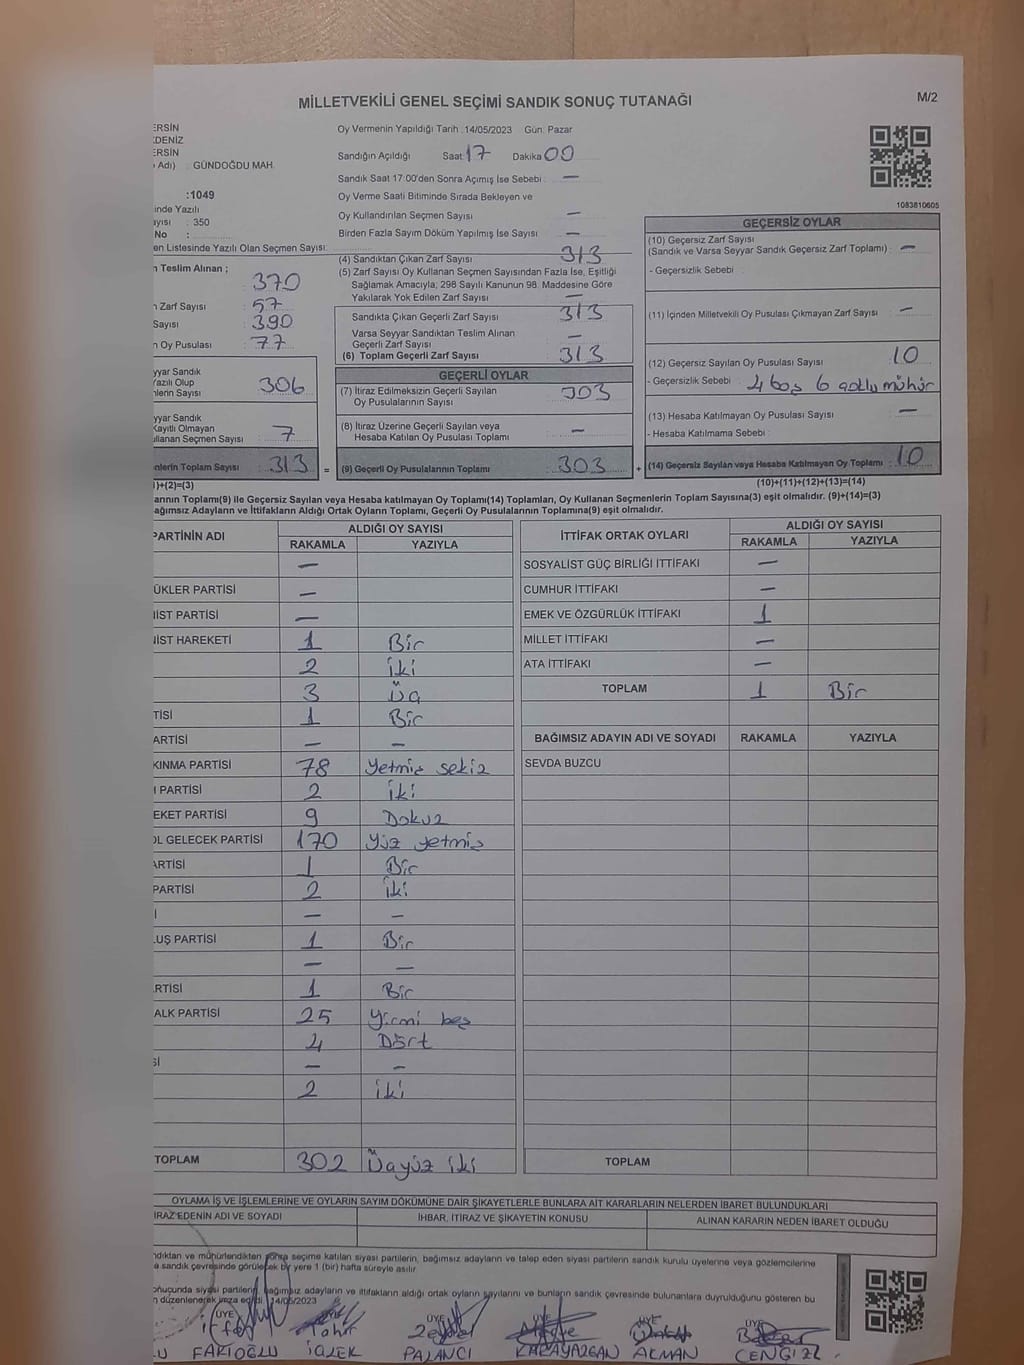 MİLLETVEKİLİ GENEL SEÇİMİ SANDIK SONUÇ TUTANAĞI
M/2
ERSİN
DENİZ
ERSİN
Adı) : GÜNDOĞDU MAH.
:1049
inde Yazılı
ayısı : 350
No :
en Listesinde Yazılı Olan Seçmen Sayısı:
n Teslim Alınan ;
370
n Zarf Sayısı : 57
Sayısı : 390
n Oy Pusulası : 77
yyar Sandık
Yazılı Olup
nlerin Sayısı : 306
yyar Sandık
Kayıtlı Olmayan
ullanan Seçmen Sayısı : 7
nlerin Toplam Sayısı : 313 =
)+(2)=(3)
Oy Vermenin Yapıldığı Tarih :14/05/2023 Gün: Pazar
Sandığın Açıldığı Saat: 17 Dakika: 00
Sandık Saat 17:00'den Sonra Açılmış İse Sebebi : —
Oy Verme Saati Bitiminde Sırada Bekleyen ve
Oy Kullandırılan Seçmen Sayısı : —
Birden Fazla Sayım Döküm Yapılmış İse Sayısı : —
(4) Sandıktan Çıkan Zarf Sayısı : 313
(5) Zarf Sayısı Oy Kullanan Seçmen Sayısından Fazla İse, Eşitliği
Sağlamak Amacıyla; 298 Sayılı Kanunun 98. Maddesine Göre
Yakılarak Yok Edilen Zarf Sayısı : —
Sandıkta Çıkan Geçerli Zarf Sayısı : 313
Varsa Seyyar Sandıktan Teslim Alınan
Geçerli Zarf Sayısı : —
(6) Toplam Geçerli Zarf Sayısı : 313
GEÇERLİ OYLAR
(7) İtiraz Edilmeksizin Geçerli Sayılan
Oy Pusulalarının Sayısı : 303
(8) İtiraz Üzerine Geçerli Sayılan veya
Hesaba Katılan Oy Pusulası Toplamı : —
(9) Geçerli Oy Pusulalarının Toplamı : 303 +
1083810605
GEÇERSİZ OYLAR
(10) Geçersiz Zarf Sayısı
(Sandık ve Varsa Seyyar Sandık Geçersiz Zarf Toplamı) : —
- Geçersizlik Sebebi :
(11) İçinden Milletvekili Oy Pusulası Çıkmayan Zarf Sayısı : —
(12) Geçersiz Sayılan Oy Pusulası Sayısı : 10
- Geçersizlik Sebebi : 4 boş 6 çoklu mühür
(13) Hesaba Katılmayan Oy Pusulası Sayısı : —
- Hesaba Katılmama Sebebi :
(14) Geçersiz Sayılan veya Hesaba Katılmayan Oy Toplamı : 10
(10)+(11)+(12)+(13)=(14)
arının Toplamı(9) ile Geçersiz Sayılan veya Hesaba katılmayan Oy Toplamı(14) Toplamları, Oy Kullanan Seçmenlerin Toplam Sayısına(3) eşit olmalıdır. (9)+(14)=(3)
ağımsız Adayların ve İttifakların Aldığı Ortak Oyların Toplamı, Geçerli Oy Pusulalarının Toplamına(9) eşit olmalıdır.
PARTİNİN ADI ALDIĞI OY SAYISI
RAKAMLA YAZIYLA
—
ÜKLER PARTİSİ —
NİST PARTİSİ —
NİST HAREKETİ 1 Bir
2 iki
3 Üç
TİSİ 1 Bir
ARTİSİ — —
KINMA PARTİSİ 78 yetmiş sekiz
I PARTİSİ 2 iki
EKET PARTİSİ 9 Dokuz
OL GELECEK PARTİSİ 170 yüz yetmiş
ARTİSİ 1 Bir
PARTİSİ 2 iki
İ — —
LUŞ PARTİSİ 1 Bir
— —
RTİSİ 1 Bir
ALK PARTİSİ 25 yirmi beş
4 Dört
Sİ — —
2 iki
TOPLAM 302 Üçyüz iki
İTTİFAK ORTAK OYLARI ALDIĞI OY SAYISI
RAKAMLA YAZIYLA
SOSYALİST GÜÇ BİRLİĞİ İTTİFAKI —
CUMHUR İTTİFAKI —
EMEK VE ÖZGÜRLÜK İTTİFAKI 1
MİLLET İTTİFAKI —
ATA İTTİFAKI —
TOPLAM 1 Bir
BAĞIMSIZ ADAYIN ADI VE SOYADI RAKAMLA YAZIYLA
SEVDA BUZCU
TOPLAM
OYLAMA İŞ VE İŞLEMLERİNE VE OYLARIN SAYIM DÖKÜMÜNE DAİR ŞİKAYETLERLE BUNLARA AİT KARARLARIN NELERDEN İBARET BULUNDUKLARI
İRAZ EDENİN ADI VE SOYADI İHBAR, İTİRAZ VE ŞİKAYETİN KONUSU ALINAN KARARIN NEDEN İBARET OLDUĞU
ndıktan ve mühürlendikten sonra seçime katılan siyasi partilerin, bağımsız adayların ve talep eden siyasi partilerin sandık kurulu üyelerine veya gözlemcilerine
a sandık çevresinde görülecek bir yere 1 (bir) hafta süreyle asılır.
onucunda siyasi partilerin, bağımsız adayların ve ittifakların aldığı ortak oyların sayılarını ve bunların sandık çevresinde bulunanlara duyrulduğunu gösteren bu
n düzenlenerek imza edildi. 14/05/2023
ÜYE ÜYE ÜYE ÜYE ÜYE ÜYE
Tahir
FAKIOĞLU PALANCI ACMAN CENGİZ